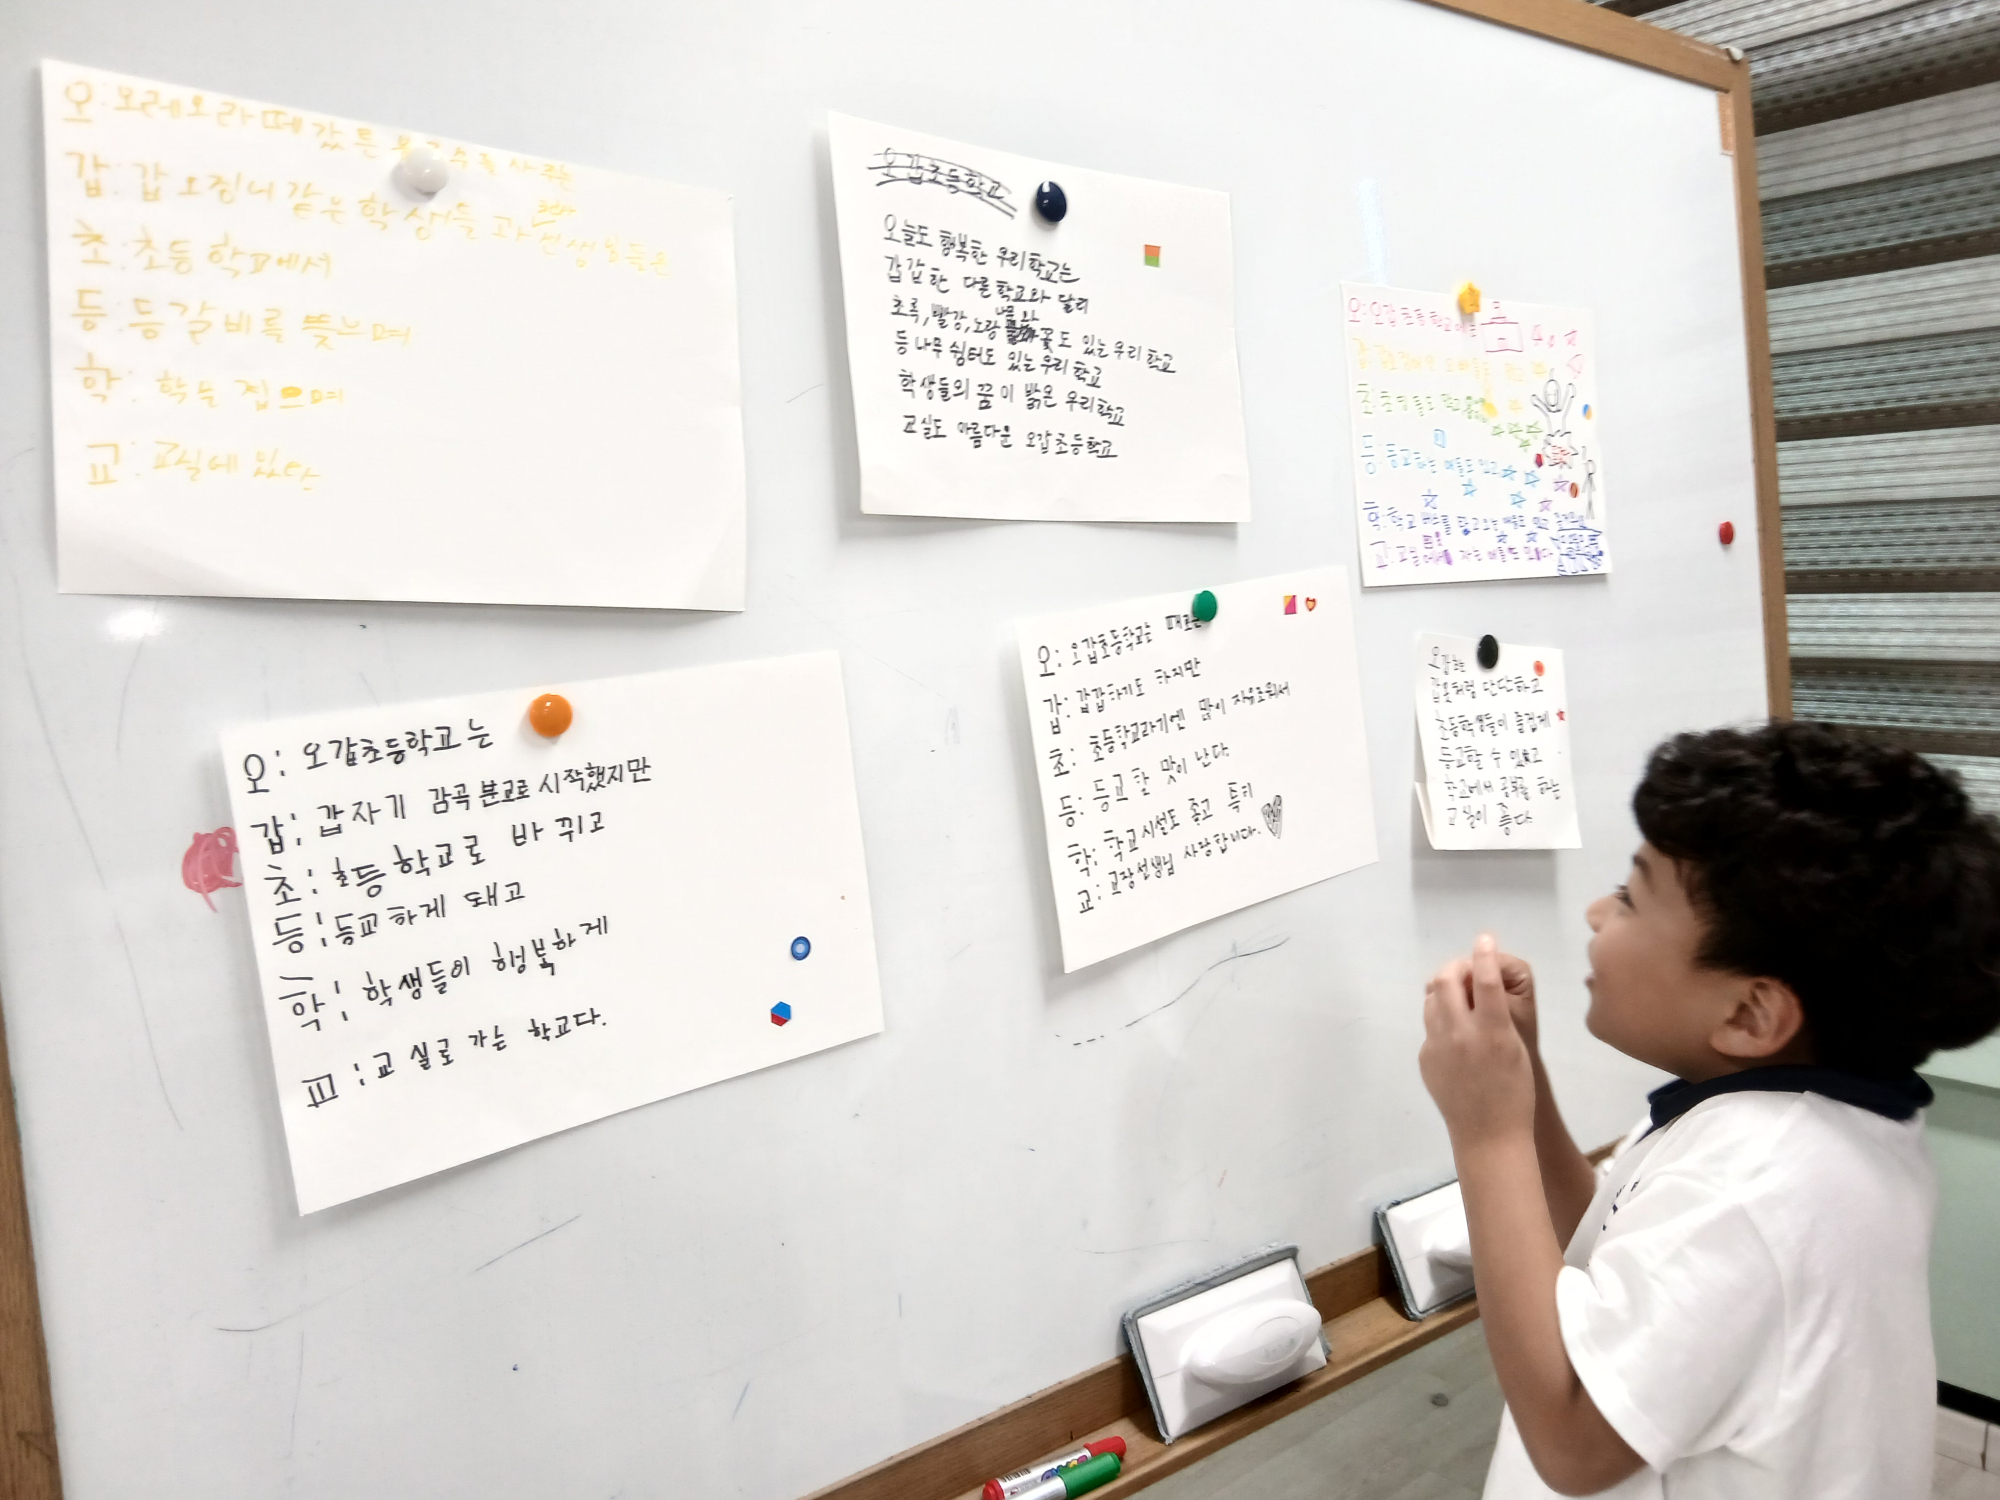 오: 오레오라떼 같은 사는
갑: 갑오징어 같은 학생들과 선생님들은
초: 초등학교에서
등: 등갈비를 뜯으며
학: 학는 접으며
교: 교실에 있다
오갑초등학교
오늘도 행복한 우리학교는
갑갑한 다른학교와 달리
초록, 빨강, 노랑 나무와 꽃도 있는 우리학교
등나무 쉼터도 있는 우리학교
학생들의 꿈이 밝은 우리학교
교실도 아름다운 오갑초등학교
오: 오갑초등학교에는
초:
등: 등교하는 애들도 있고
학: 학교버스를 타고오는 애들도 있고
교: 교실에서 자는 애들도 있다
오: 오갑초등학교는
갑: 갑자기 감곡분교로 시작했지만
초: 초등학교로 바뀌고
등: 등교하게 돼고
학: 학생들이 행복하게
교: 교실로 가는 학교다.
오: 오갑초등학교는 때로는
갑: 갑갑하기도 하지만
초: 초등학교라기엔 많이 자유로워서
등: 등교할 맛이 난다.
학: 학교시설도 좋고 특히
교: 교장선생님 사랑합니다.
오갑초는
갑옷처럼 단단하고
초등학생들이 즐겁게
등교할 수 있고
학교에서 공부를 하는
교실이 좋다.